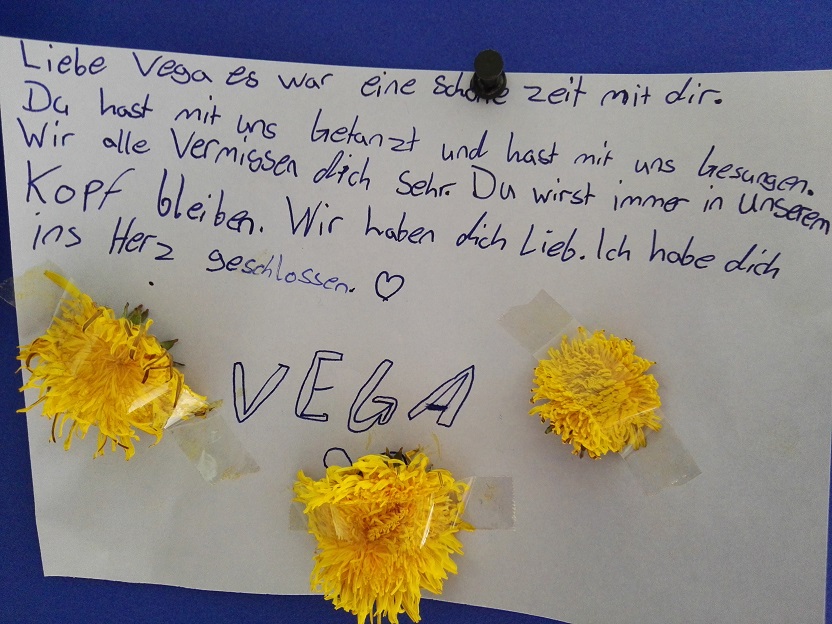 Liebe Vega es war eine schöne zeit mit dir.
Du hast mit uns getanzt und hast mit uns gesungen.
Wir alle Vermissen dich sehr. Du wirst immer in unserem
Kopf bleiben. Wir haben dich Lieb. Ich habe dich
ins Herz geschlossen. ♡
VEGA